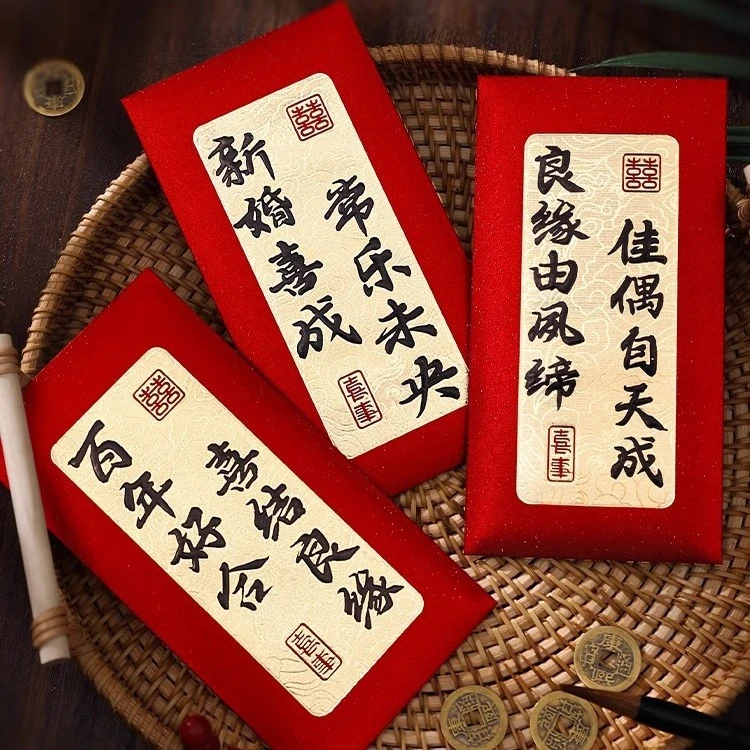 囍
新婚喜成
常乐未央
喜事
囍
良缘由夙缔
佳偶自天成
喜事
囍
百年好合
喜结良缘
喜事